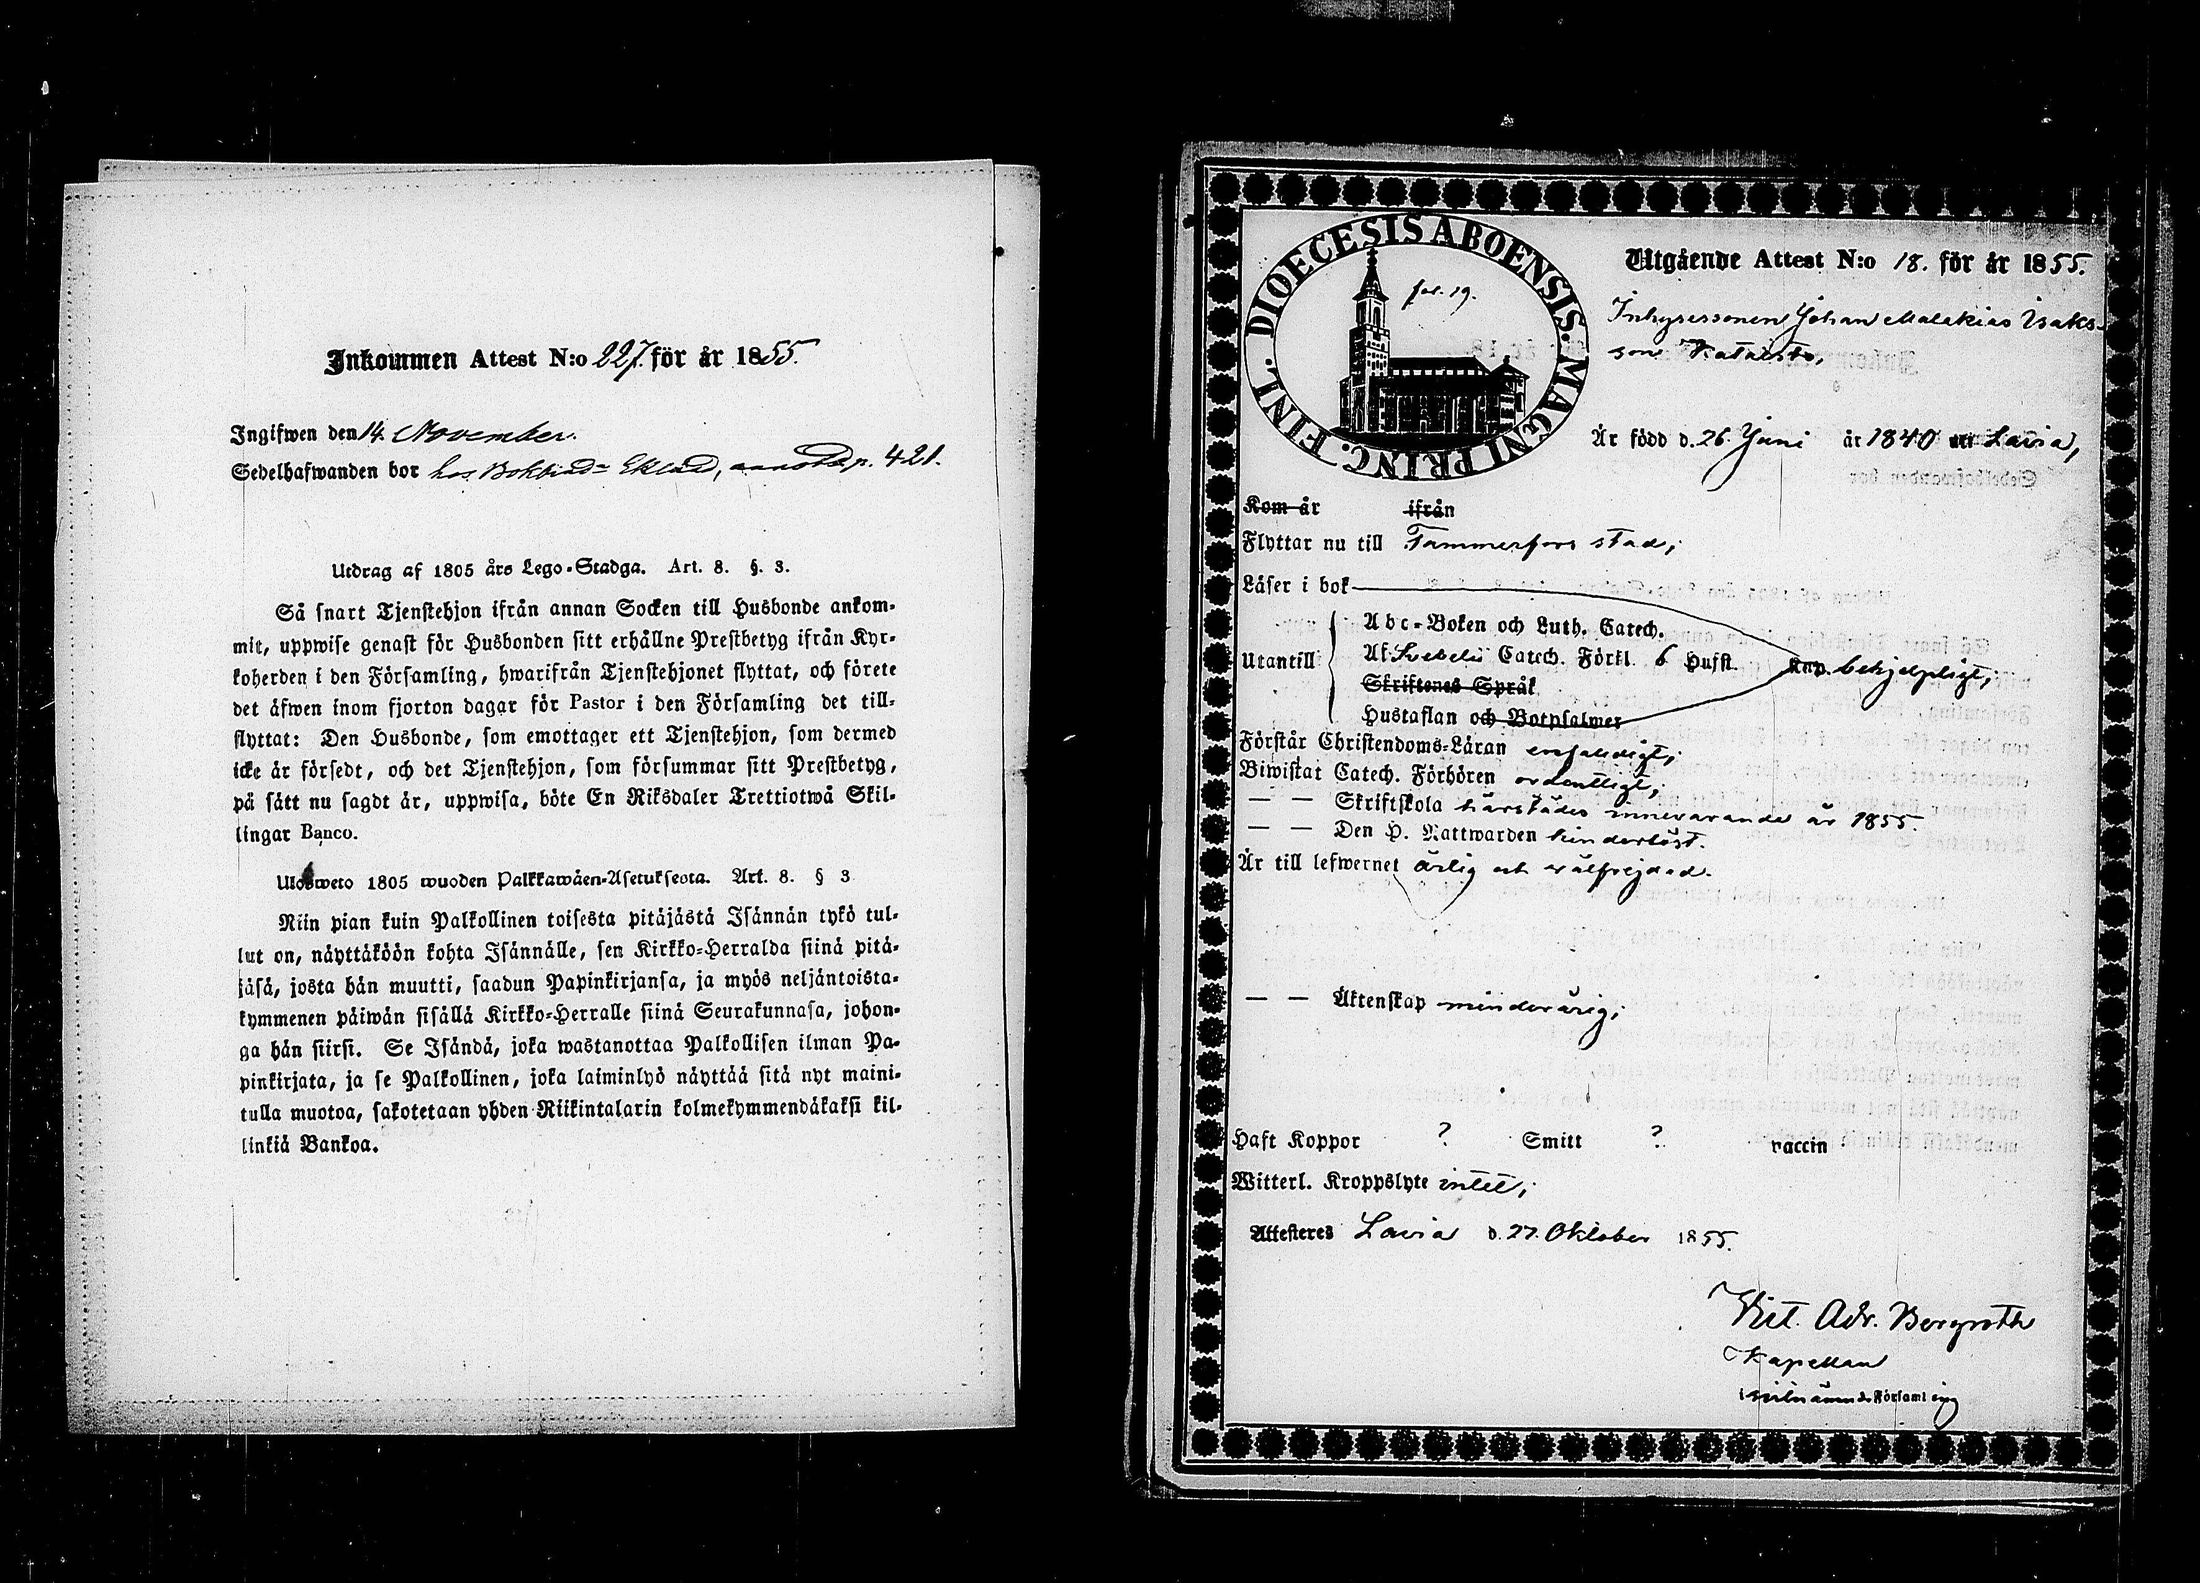 Inkommen Attest N:o 227. för år 1855.
Ingifwen den 14. November.
Sedelhafwanden bor hos Bokbind= Eklund, p. 421.
Utdrag af 1805 års Lego-Stadga. Art. 8. §. 3.
Så snart Tjenstehjon ifrån annan Socken till Husbonde ankom-
mit, uppwise genast för Husbonden sitt erhållne Prestbetyg ifrån Kyr-
koherden i den Församling, hwarifrån Tjenstehjonet flyttat, och förete
det äfwen inom fjorton dagar för Pastor i den Församling det till-
flyttat: Den Husbonde, som emottager ett Tjenstehjon, som dermed
icke är försedt, och det Tjenstehjon, som försummar sitt Prestbetyg,
på sätt nu sagdt är, uppwisa, böte En Riksdaler Trettiotwå Skil-
lingar Banco.
Ulosweto 1805 wuoden Palkkawäen-Asetuksesta. Art. 8. § 3
Niin pian kuin Palkollinen toisesta pitäjästä Isännän tykö tul-
lut on, näyttäköön kohta Isännälle, sen Kirkko-Herralda siinä pitä-
jäsä, josta hän muutti, saadun Papinkirjansa, ja myös neljäntoista-
kymmenen päiwän sisällä Kirkko-Herralle siinä Seurakunnasa, johon-
ga hän siirsi. Se Isändä, joka wastanottaa Palkollisen ilman Pa-
pinkirjata, ja se Palkollinen, joka laiminlyö näyttää sitä nyt maini-
tulla muotoa, sakotetaan yhden Riikintalarin kolmekymmendäkaksi kil-
linkiä Bankoa.
DIOECESIS ABOENSIS. MAGNI PRINC. FINL.
fol. 19.
Utgående Attest N:o 18. för år 1855.
Inhysessonen Johan Malakias Isaks-
son
Är född d. 26 Juni år 1840 Lavia,
Kom år ifrån
Flyttar nu till Tammerfors stad;
Läser i bok
Utantill
Abc-Boken och Luth. Catech.
Af Svebelii Catech. Förkl. 6 Hufst.
Skriftenes Språk
Hustaflan och Botpsalmer
behjelpligt,
Förstår Christendoms-Läran enfaldigt;
Biwistat Catech. Förhören ordentligt;
— — Skriftskola härstädes innevarande år 1855.
— — Den H. Nattwarden hinderlöst.
Är till lefwernet ärlig och välfrejdad.
— — Äktenskap minderårig;
Haft Koppor ? Smitt ? vaccin
Witterl. Kroppslyte intet;
Attesteres Lavia d. 27. Oktober 1855.
Vict. Adr. Bergroth
Kapellan
Församling